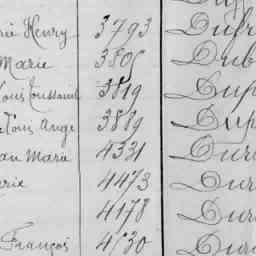 rie Henry 3793 Dufr
Marie 3805 Dub
Louis Toussaint 3819 Dup
Louis Ange 3889 Dup
an Marie 4331 Dur
rie 4473 Dur
4178 Dur
François 4730 Dur